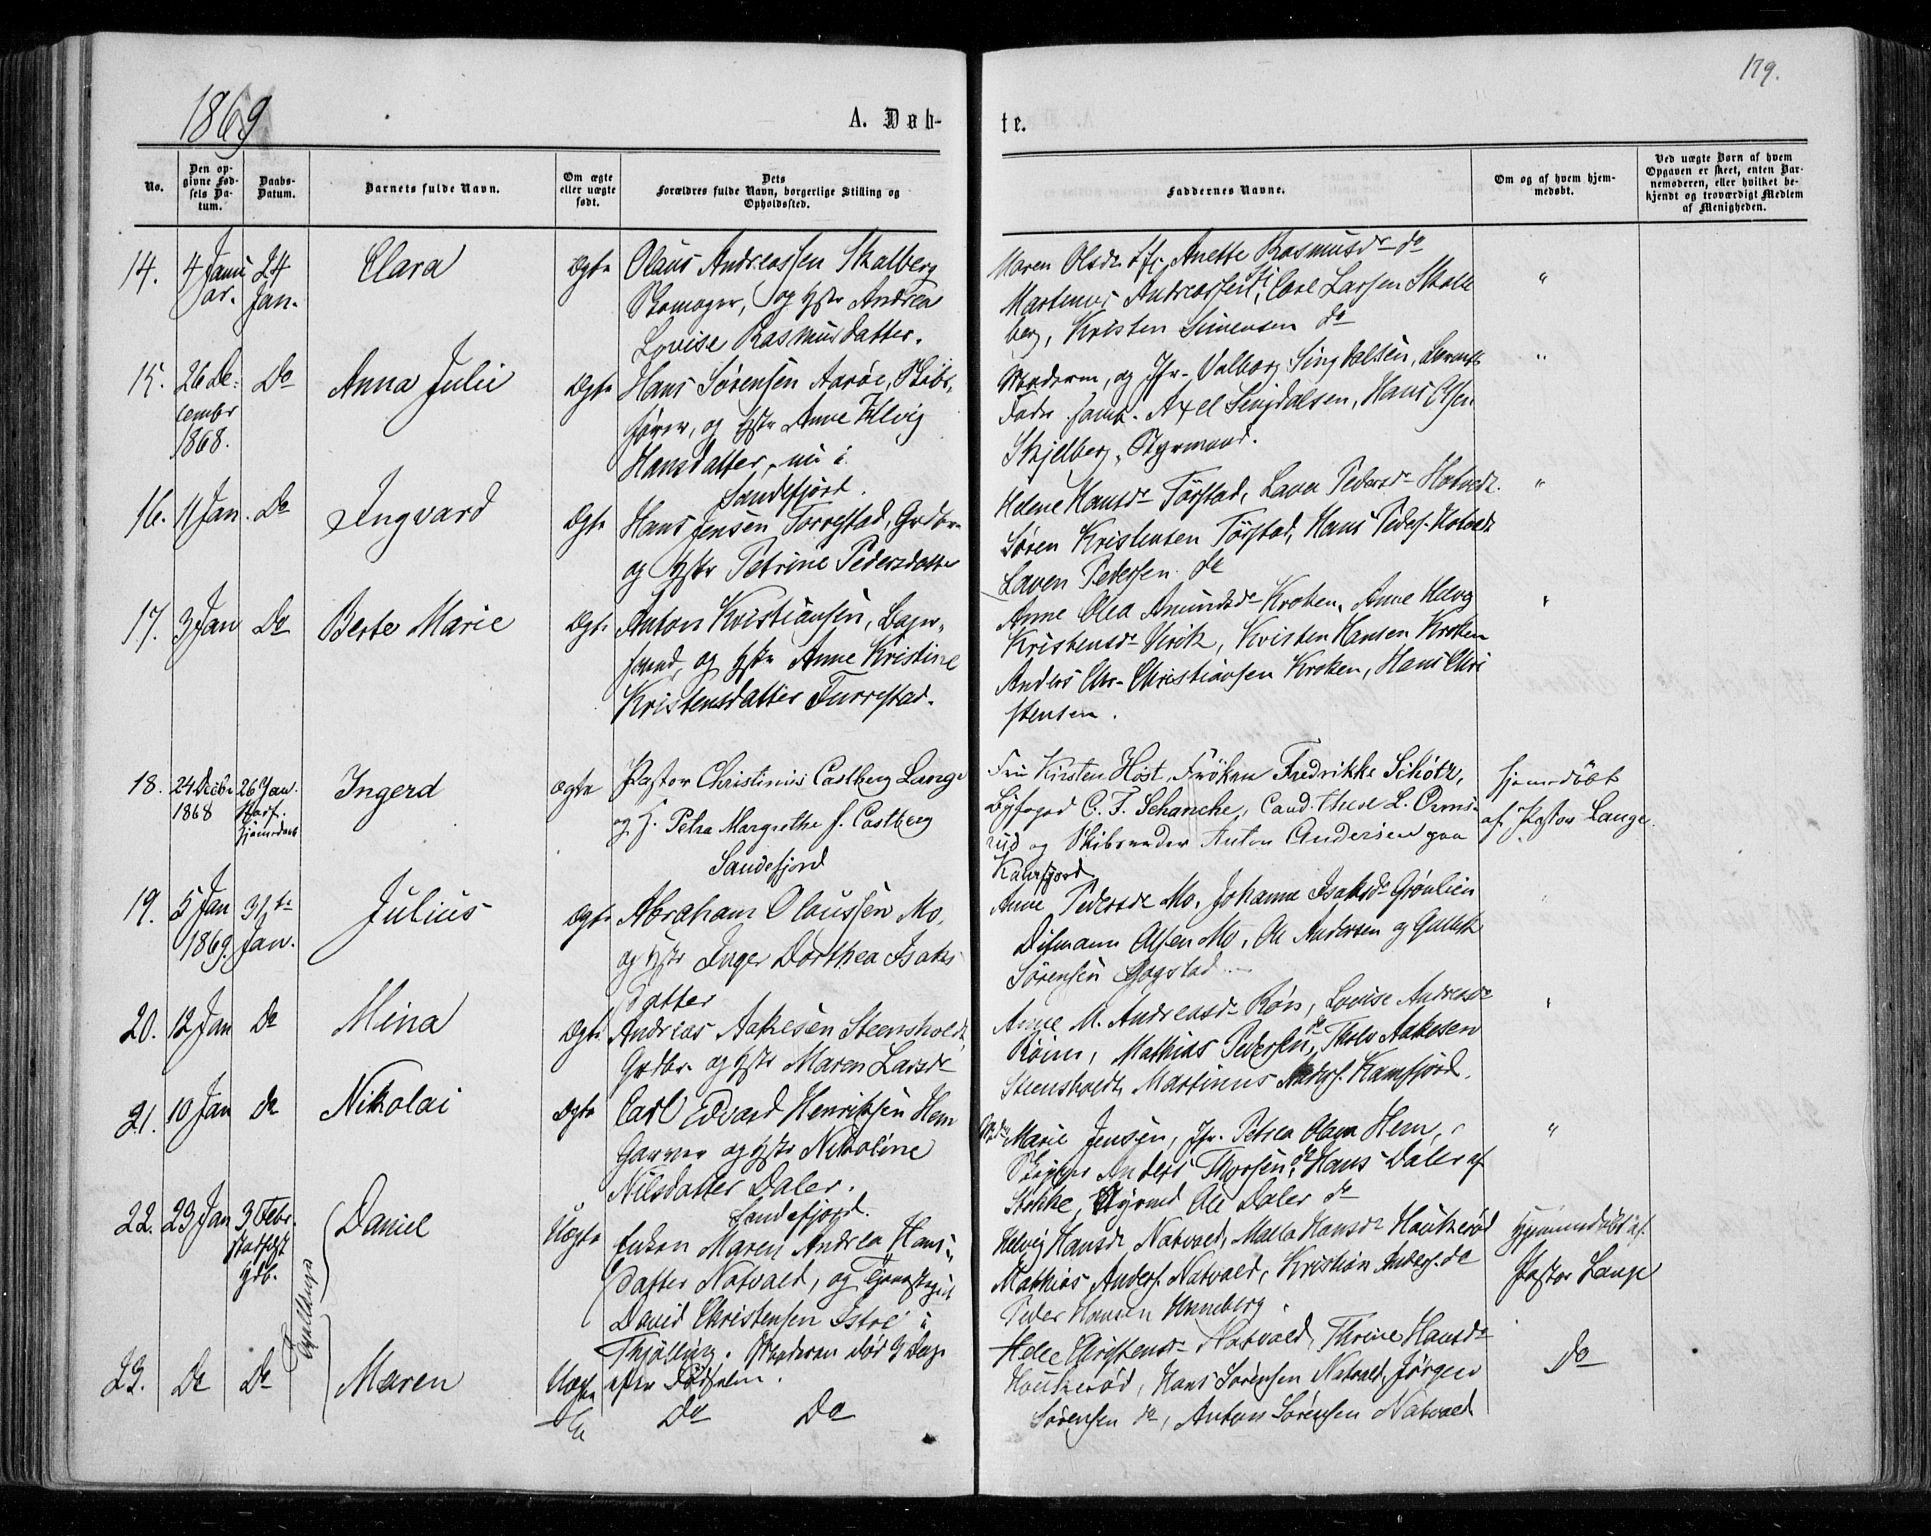 1869
A. Døb-
te.
179.
No.
Den op-
givne Fød-
sels Da-
tum.
Daabs-
Datum.
Barnets fulde Navn.
Om ægte
eller uægte
født.
Dets
Forældres fulde Navn, borgerlige Stilling og
Opholdssted.
Faddernes Navne.
Om og af hvem hjem-
medøbt.
Ved uægte Børn af hvem
Opgaven er skeet, enten Bar-
nemoderen, eller hvilket be-
kjendt og troværdigt Medlem
af Menigheden.
14. 4 Janu 24 Clara Ægte Olaus Andreassen Skalberg
ar. Jan. Skomager, og Hstr Andrea
Lovise Rasmusdatter.
Maren Olsdr Anette Rasmusdr do
Martinus Andreassen Carl Larsen Skal
berg, Kristen Simensen do
"
15. 26 De- Do Anna Julie Ægte Hans Sørensen Aarøe, Skibs-
cember fører, og Hstr Anne Helvig
1868. Hansdatter, nu i
Sandefjord.
Moderen, og Jfr. Valborg Singdalsen,
Fader samt. Axel Singdalsen, Hans Olsen
Skjelberg, Styrmand.
"
16. 11 Jan. Do Ingvard Ægte Hans Jensen Torrestad, Grdbr.
og Hstr Petrine Pedersdatter
Helene Hansdr Torstad, Lava Pedersdr Hotvedt.
Søren Kristensen Torstad, Hans Peders. Hotvedt
Laven Pedersen do
"
17. 3 Jan Do Berte Marie Ægte Anton Kristiansen,
og Hstr Anne Kristine
Kristensdatter Furrestad.
Anne Olea Amundsdr Kroken, Anne Helvig
Kristensdr Virik, Kristen Hansen Kroken
Anders Chr. Christiansen Kroken, Hans Chri
stensen.
"
18. 24 Decbr 26 Jan. Ingerd Ægte Pastor Christinus Castberg Lange
1868 og H. Petra Margrethe f. Castberg
Sandefjord
Fru Kirsten Høst, Frøken Fredrikke Schøtz,
Byfoged C. F. Schanche, Cand. theol L. Orms-
rud og Skibsreder Anton Andersen paa
Kamfjord
hjemmedøbt
af Pastor Lange.
19. 5 Jan 31te Julius Ægte Abraham Olaussen Mo,
1869. Jan. og Hstr Inger Dorthea Isaks
datter
Anne Pedersdr Mo, Johanne Isaksdr Grønlien
Ditmann Olsen Mo, Ole Andersen og Gullik
Sørensen Gogstad
20. 12 Jan Do Mina Ægte Andreas Aakesen Steensholdt,
Grdbr. og Hstr Maren Larsdr
Anne M. Andreasdr Røn, Lovise Andreasdr
Røim, Mathias Pedersen do, Tholv Aakesen
Steensholdt, Martinus Anders. Kamfjord.
"
21. 10 Jan do Nikolai Ægte Carl Edvard Henriksen Hem
Garver og Hstr Nikoline
Nilsdatter Daler.
Sandefjord.
Marie Jensen, Jfr. Petrea Olava Hem,
Skipper Anders Thorsen, do Hans Daler af
Stokke, Styrmd Ole Daler do
"
22. 23 Jan 3 Febr. Daniel Uægte Enken Maren Andrea Hans-
stadfæst datter Natvald, og Tjenestegut
Hdb. David Christensen Istre i
Tvillinger
Thjølling. Moderen død 9 Dage
efter Fødselen.
Helvig Hansdr Natvald, Malla Hansdr Haukerød
Mathias Anders. Natvald, Kristian Anders. do
Peder Hansen Unneberg.
hjemmedøbt af
Pastor Lange
23. Do Do Maren Uægte
Do Do
Helle Christensdr Natvald, Thrine Hansdr
Haukerød, Hans Sørensen Natvald, Jørgen
Sørensen do, Anton Sørensen Natvald
Do